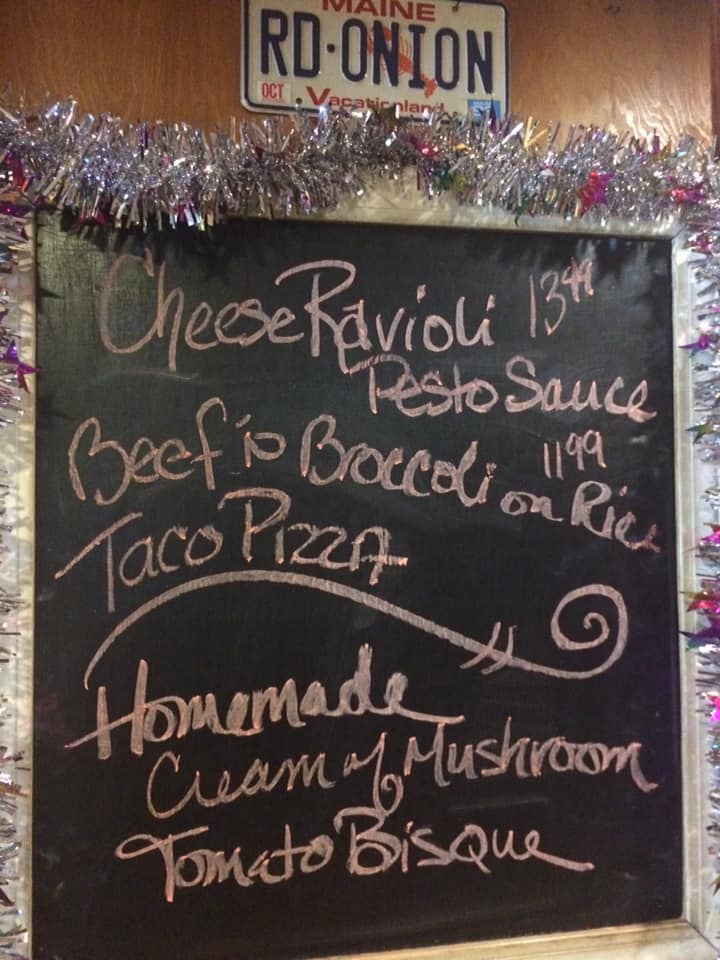 MAINE
RD·ONION
OCT
Vacationland
Cheese Ravioli 13.99
Pesto Sauce
Beef 'n Broccoli 11.99
on Rice
Taco Pizza
Homemade
Cream of Mushroom
Tomato Bisque